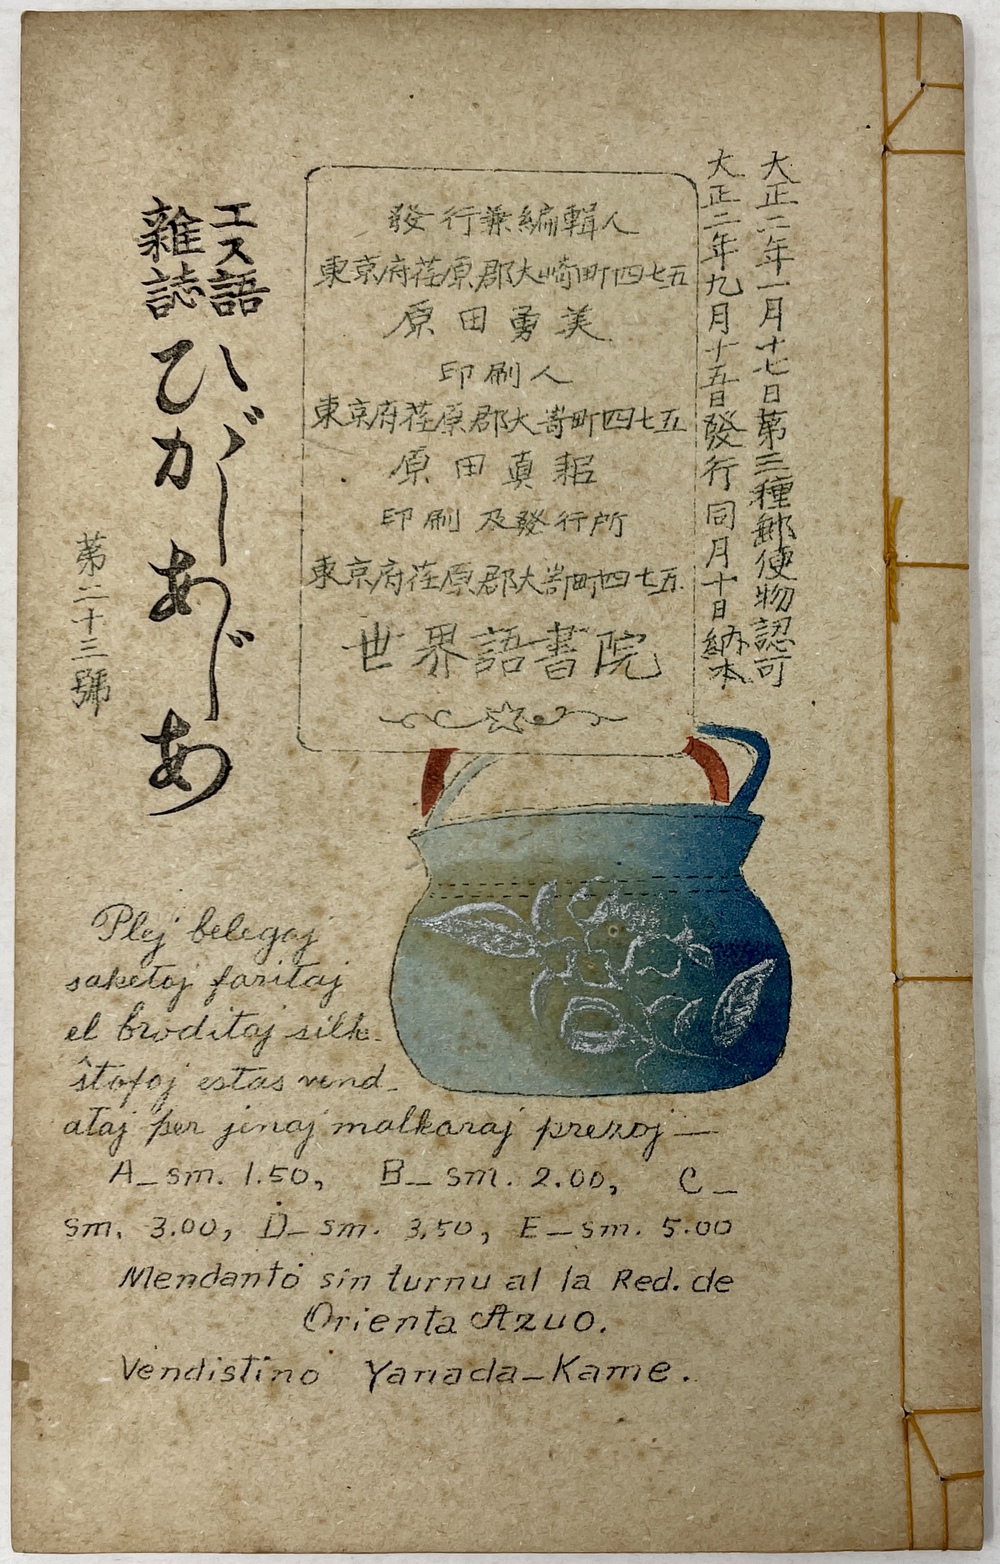 大正二年一月十七日第三種郵便物認可
大正二年九月十五日發行同月十日納本
發行兼編輯人
東京府荏原郡大崎町四七五
原田勇美
印刷人
東京府荏原郡大嵜町四七五
原田眞
印刷及發行所
東京府荏原郡大嵜町四七五
世界語書院
エス語
雜誌
ひがしあじあ
第二十三號
Plej belegaj
saketoj faritaj
el broditaj silk-
ŝtofoj estas vend-
ataj per jenaj malkaraj prezoj—
A—sm. 1.50, B—sm. 2.00, C—
sm. 3.00, D—sm. 3,50, E—sm. 5.00
Mendanto sin turnu al la Red. de
Orienta Azuo.
Vendistino Yamada-Kame.